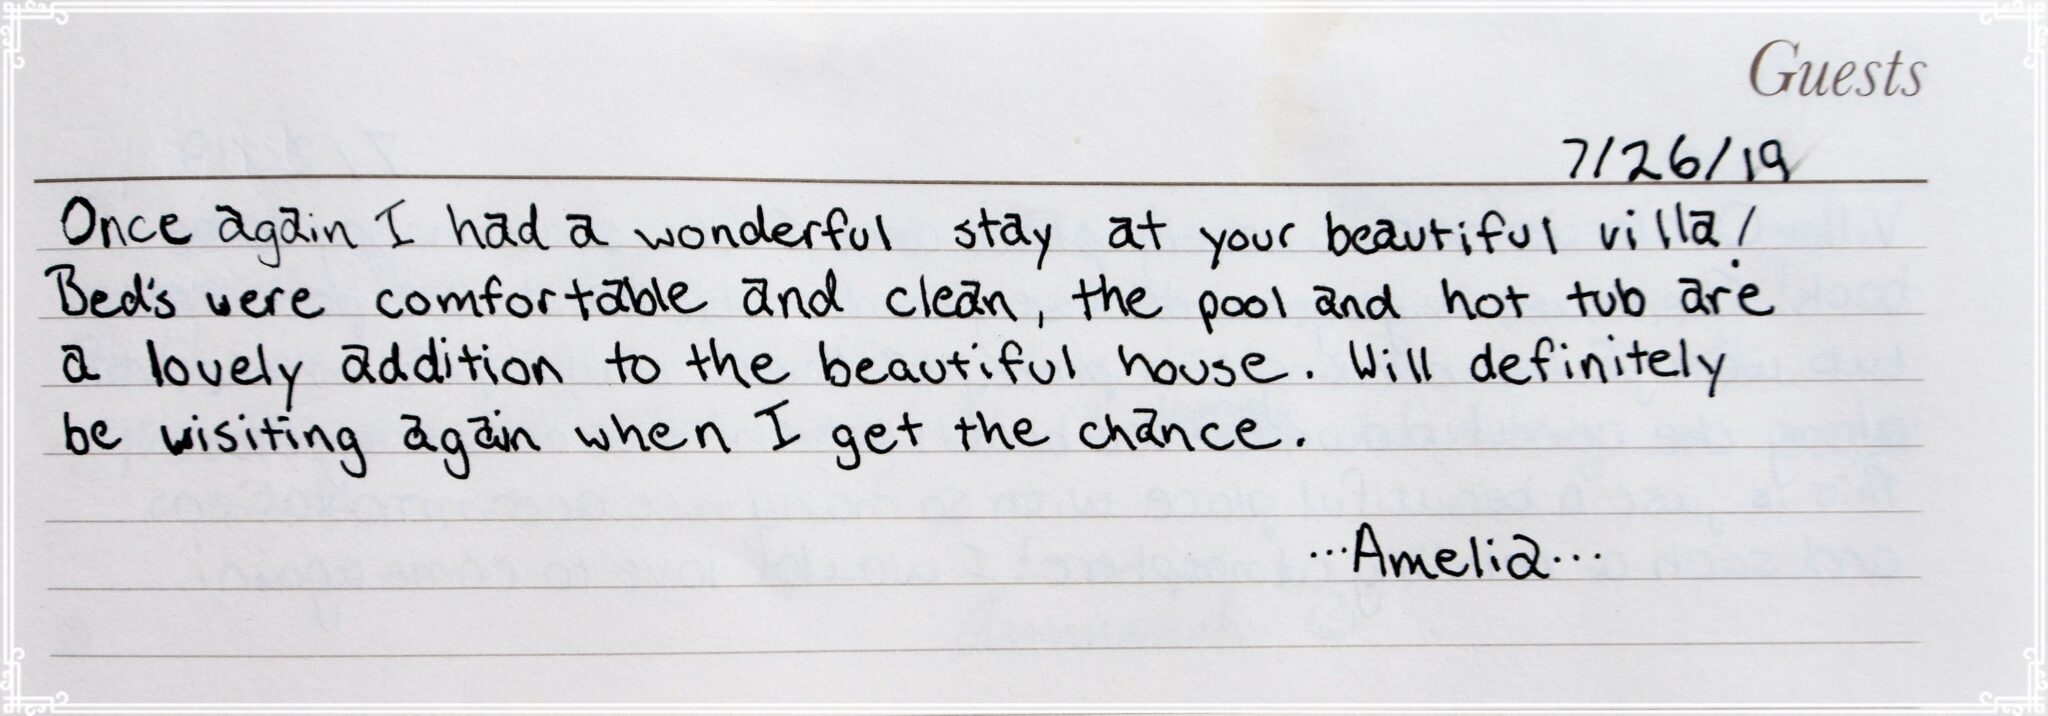 Guests
7/26/19
Once again I had a wonderful stay at your beautiful villa!
Bed's were comfortable and clean, the pool and hot tub are
a lovely addition to the beautiful house. Will definitely
be visiting again when I get the chance.
...Amelia...